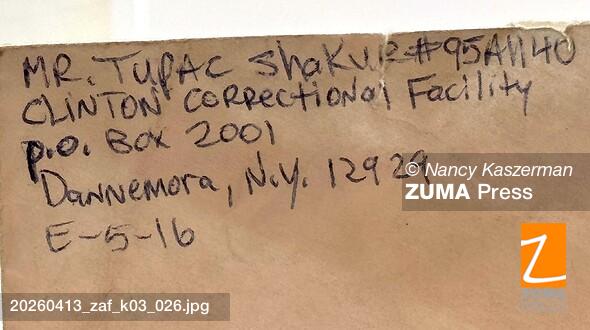 MR. TUPAC ShaKUR #95A1140
CLINTON CORRectional Facility
P.O. BOX 2001
Dannemora, N.Y. 12929
E-5-16
© Nancy Kaszerman
ZUMA Press
Z
ZUMA
20260413_zaf_k03_026.jpg